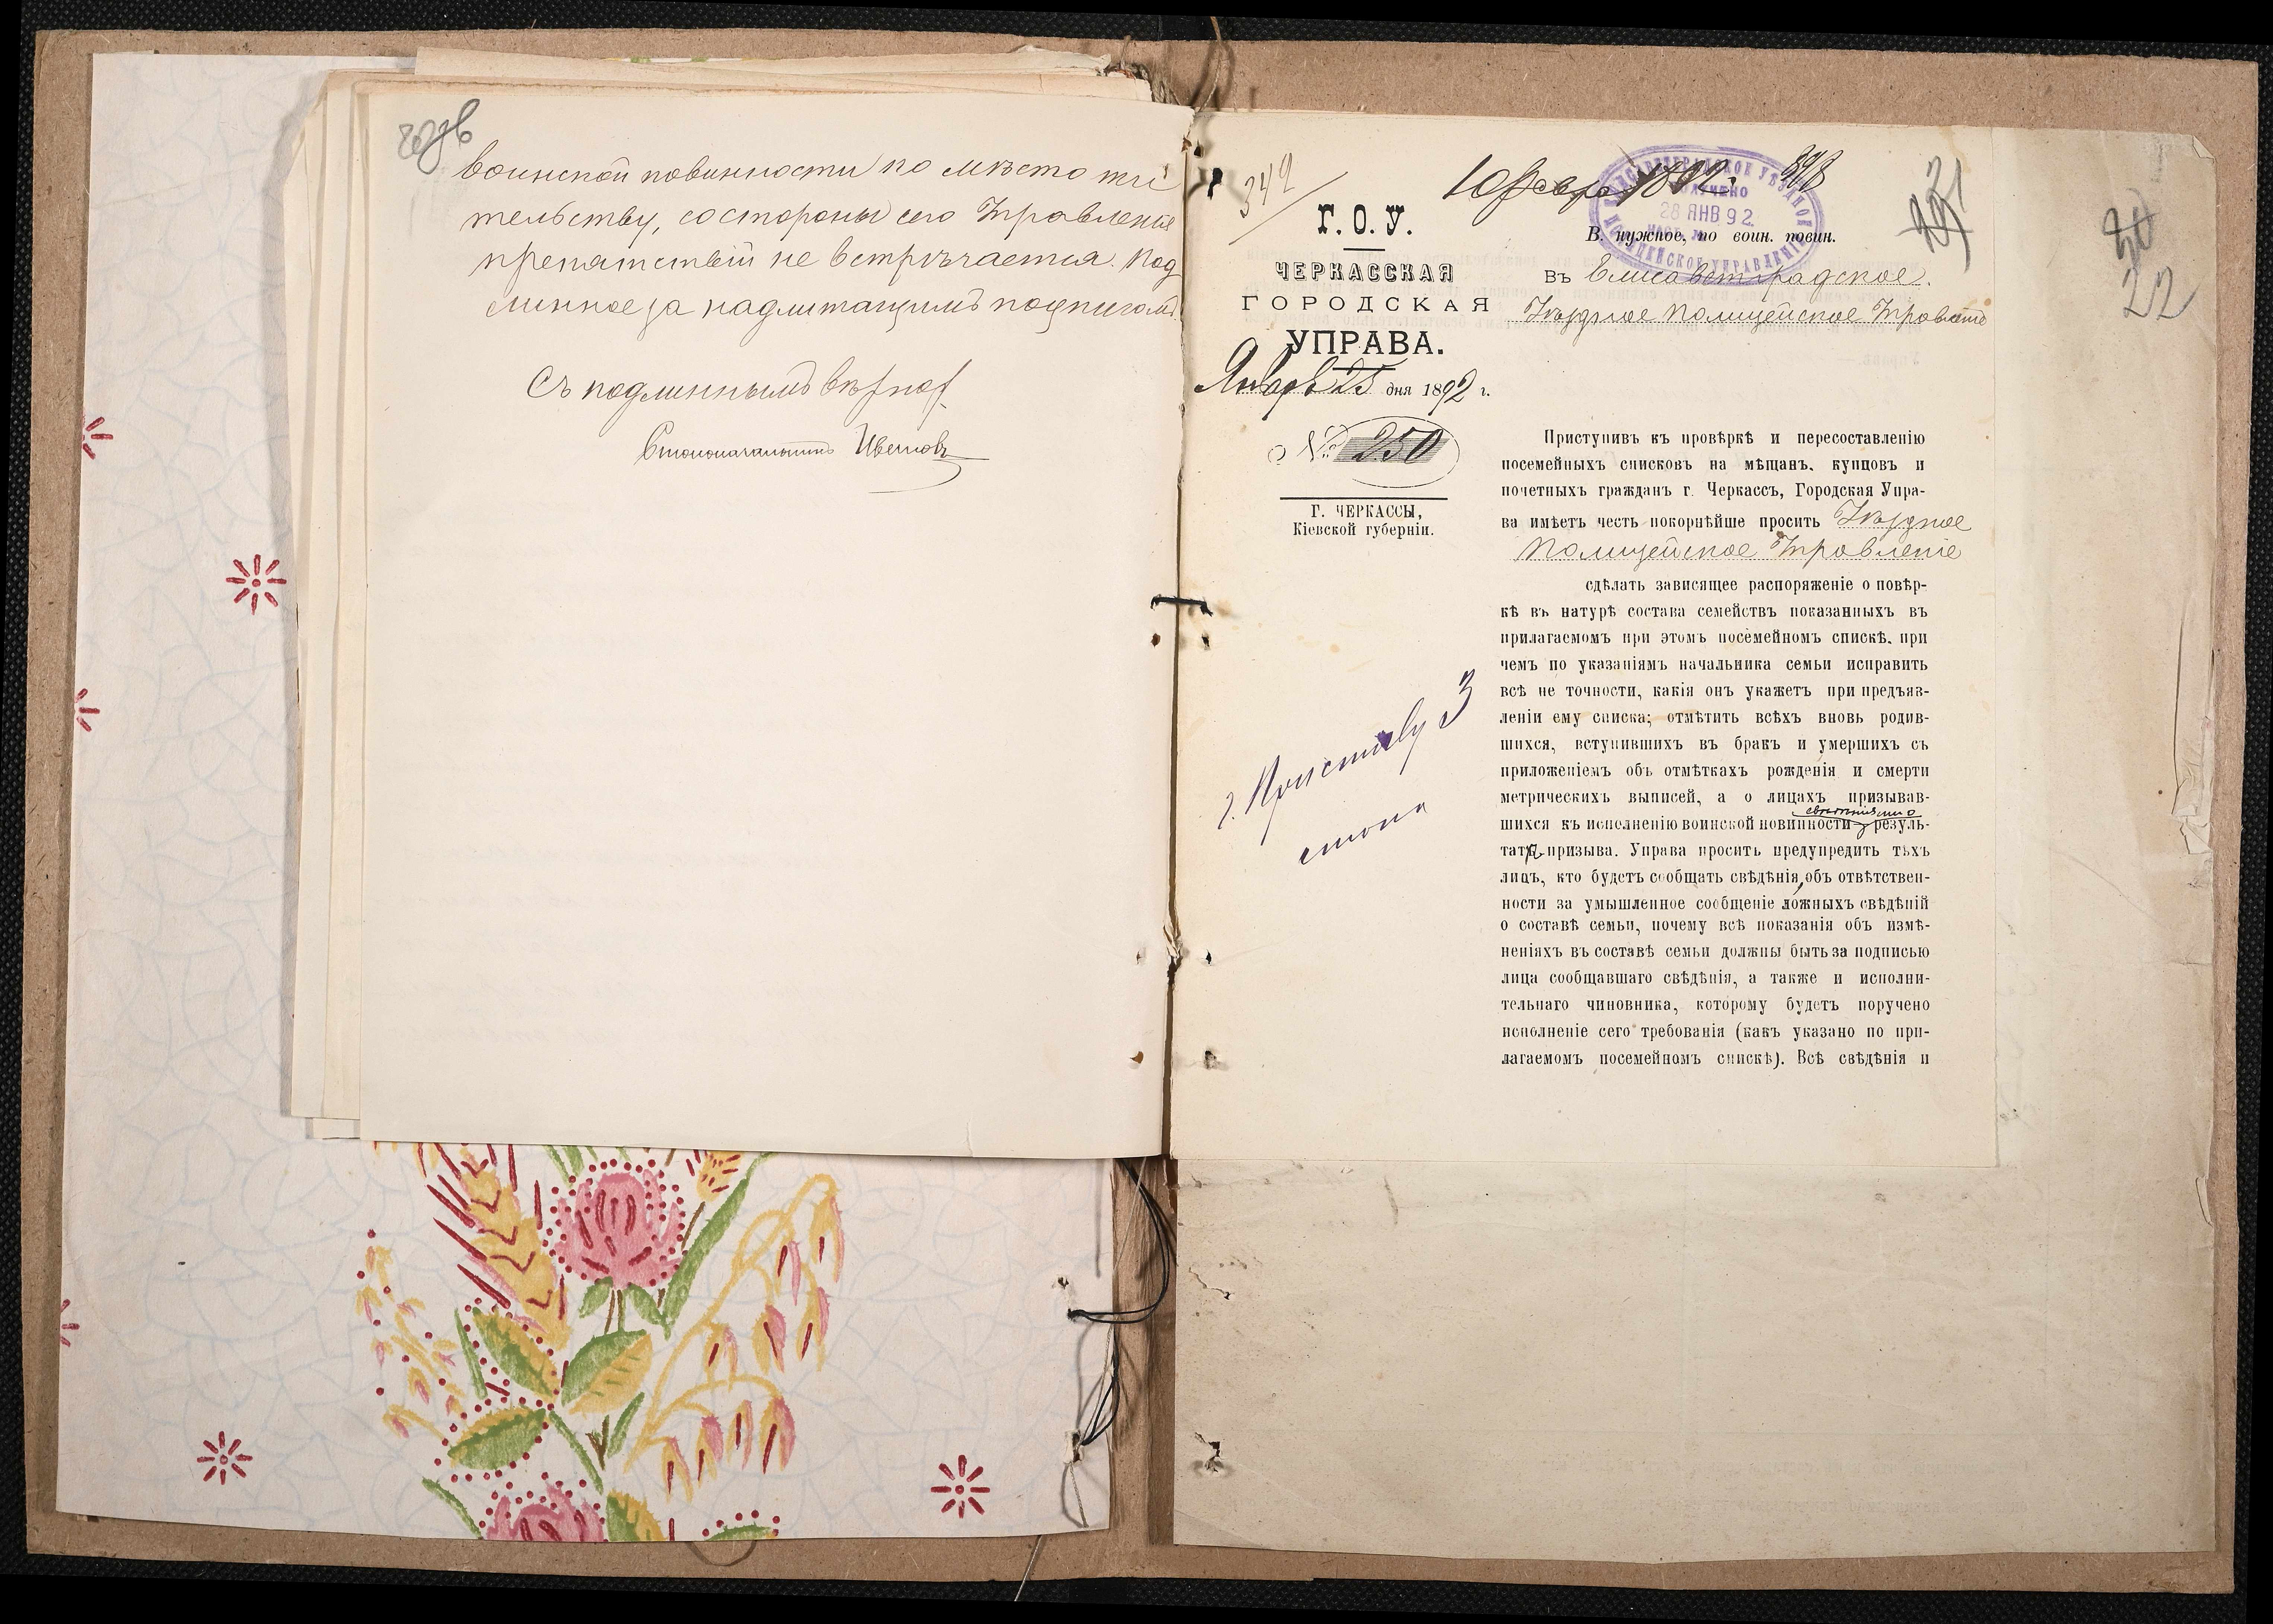 воинской повинности по мѣсто жи
тельству, состороны сего Управленія
препятствій не встрѣчается. Под
линное за надлежащимъ подписомъ.
Съ подлиннымъ вѣрно:
Столоначальникъ
349
398
21
22
Г. О. У.
ЧЕРКАССКАЯ
ГОРОДСКАЯ
УПРАВА.
Января 25 дня 1892 г.
№ 250
Г. ЧЕРКАССЫ,
Кіевской губерніи.
28 ЯНВ 92
В. нужное, по воин. повин.
Въ Елисаветградское
Уѣздное Полицейское Управленіе
Приступивъ къ провѣркѣ и пересоставленію
посемейныхъ списковъ на мѣщанъ, купцовъ и
почетныхъ гражданъ г. Черкассъ, Городская Упра-
ва имѣетъ честь покорнѣйше просить Уѣздное
Полицейское Управленіе
сдѣлать зависящее распоряженіе о повѣр-
кѣ въ натурѣ состава семействъ показанныхъ въ
прилагаемомъ при этомъ посемейномъ спискѣ, при
чемъ по указаніямъ начальника семьи исправить
всѣ не точности, какія онъ укажетъ при предъяв-
леніи ему списка; отмѣтить всѣхъ вновь родив-
шихся, вступившихъ въ бракъ и умершихъ съ
приложеніемъ объ отмѣткахъ рожденія и смерти
метрическихъ выписей, а о лицахъ призывав-
шихся къ исполненію воинской повинности резуль-
тата призыва. Управа проситъ предупредить тѣхъ
лицъ, кто будетъ сообщать свѣдѣнія, объ отвѣтствен-
ности за умышленное сообщеніе ложныхъ свѣдѣній
о составѣ семьи, почему всѣ показанія объ измѣ-
неніяхъ въ составѣ семьи должны быть за подписью
лица сообщавшаго свѣдѣнія, а также и исполни-
тельнаго чиновника, которому будетъ поручено
исполненіе сего требованія (какъ указано по при-
лагаемомъ посемейномъ спискѣ). Всѣ свѣдѣнія и
г. Приставу 3
стана